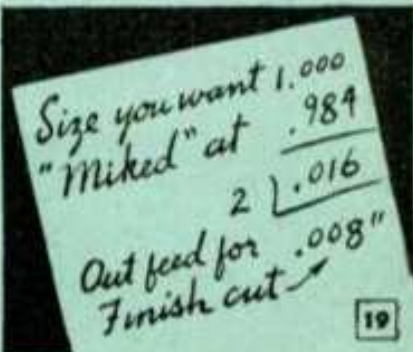 Size you want 1.000
"Miked" at .984
2 .016
Out feed for .008"
Finish cut
19